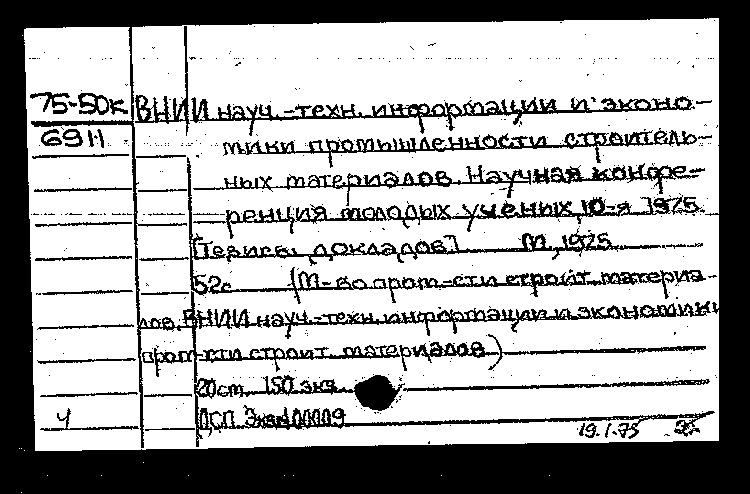 75-50к ВНИИ науч.-техн. информации и эконо-
6911 мики промышленности строитель-
ных материалов. Научная конфе-
ренция молодых ученых, 10-я 1975.
[Тезисы докладов] М., 1975
52с (М-во пром-сти строит. материа-
лов. ВНИИ науч.-техн. информации и экономики
пром-сти строит. материалов)
20см. 150 экз.
4 ДСП Экз N00009